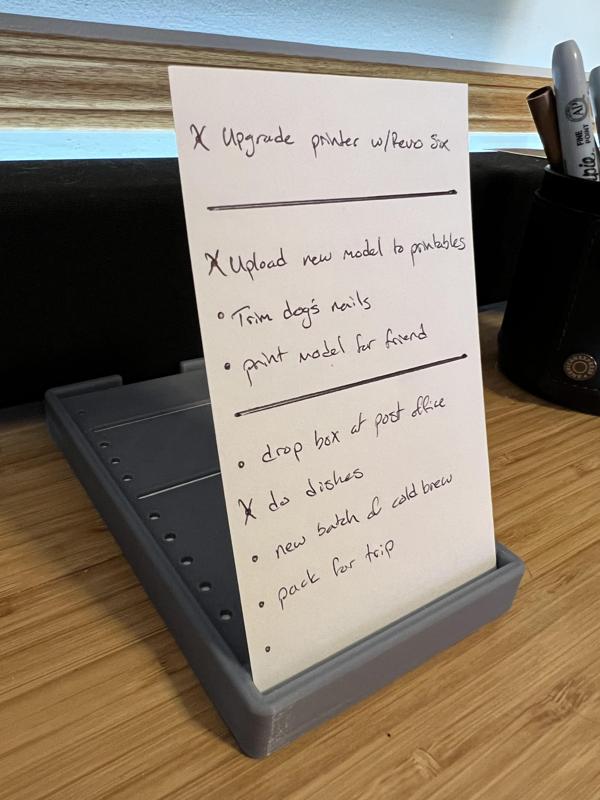 X Upgrade printer w/Revo Six
X Upload new model to printables
• Trim dog's nails
• print model for friend
• drop box at post office
X do dishes
• new batch of cold brew
• pack for trip
•
FINE
POINT
AP